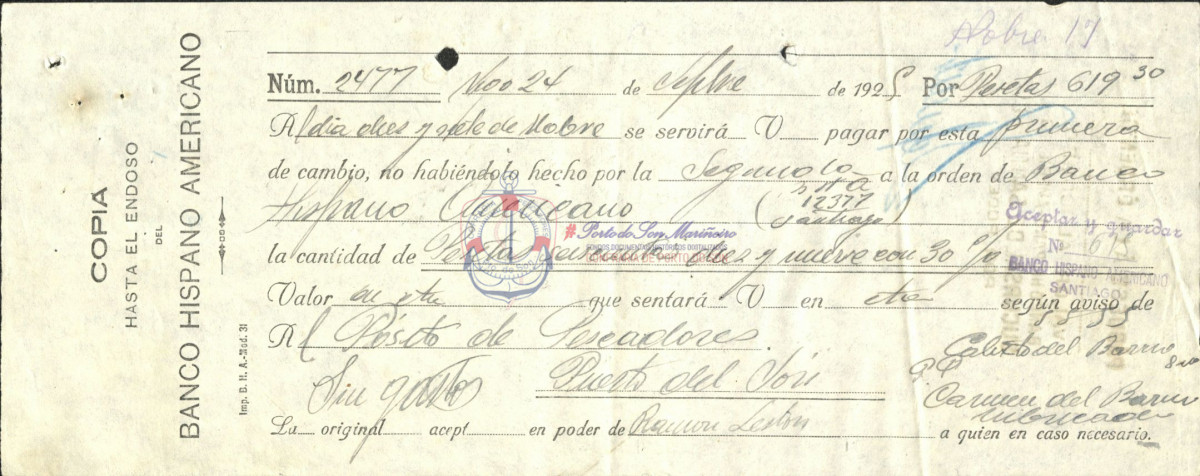 Nobre 17
Núm. 2477 Vigo 24 de Sepbre de 1925 Por Pesetas 619 30
Al dia dies y siete de Nobre se servirá V pagar por esta primera
de cambio, no habiéndolo hecho por la Segunda a la orden de Banco
Hispano Americano ( 12377 Santiago )
# Porto do Son Mariñeiro
FONDOS DOCUMENTAIS HISTÓRICOS DIGITALIZADOS
Aceptar y guardar
Nº
BANCO HISPANO AMERICANO
SANTIAGO
la cantidad de Pesetas seiscientas dies y nueve con 30 %
Valor en cta que sentará V en cta según aviso de
Al Pósito de Pescadores.
Puerto del Son
Sin gastos
Calixto del Barrio
PP
Carmen del Barrio
La original acept en poder de Ramon Leston a quien en caso necesario.
COPIA
HASTA EL ENDOSO
DEL
BANCO HISPANO AMERICANO
Imp. B. H. A.-Mod. 31